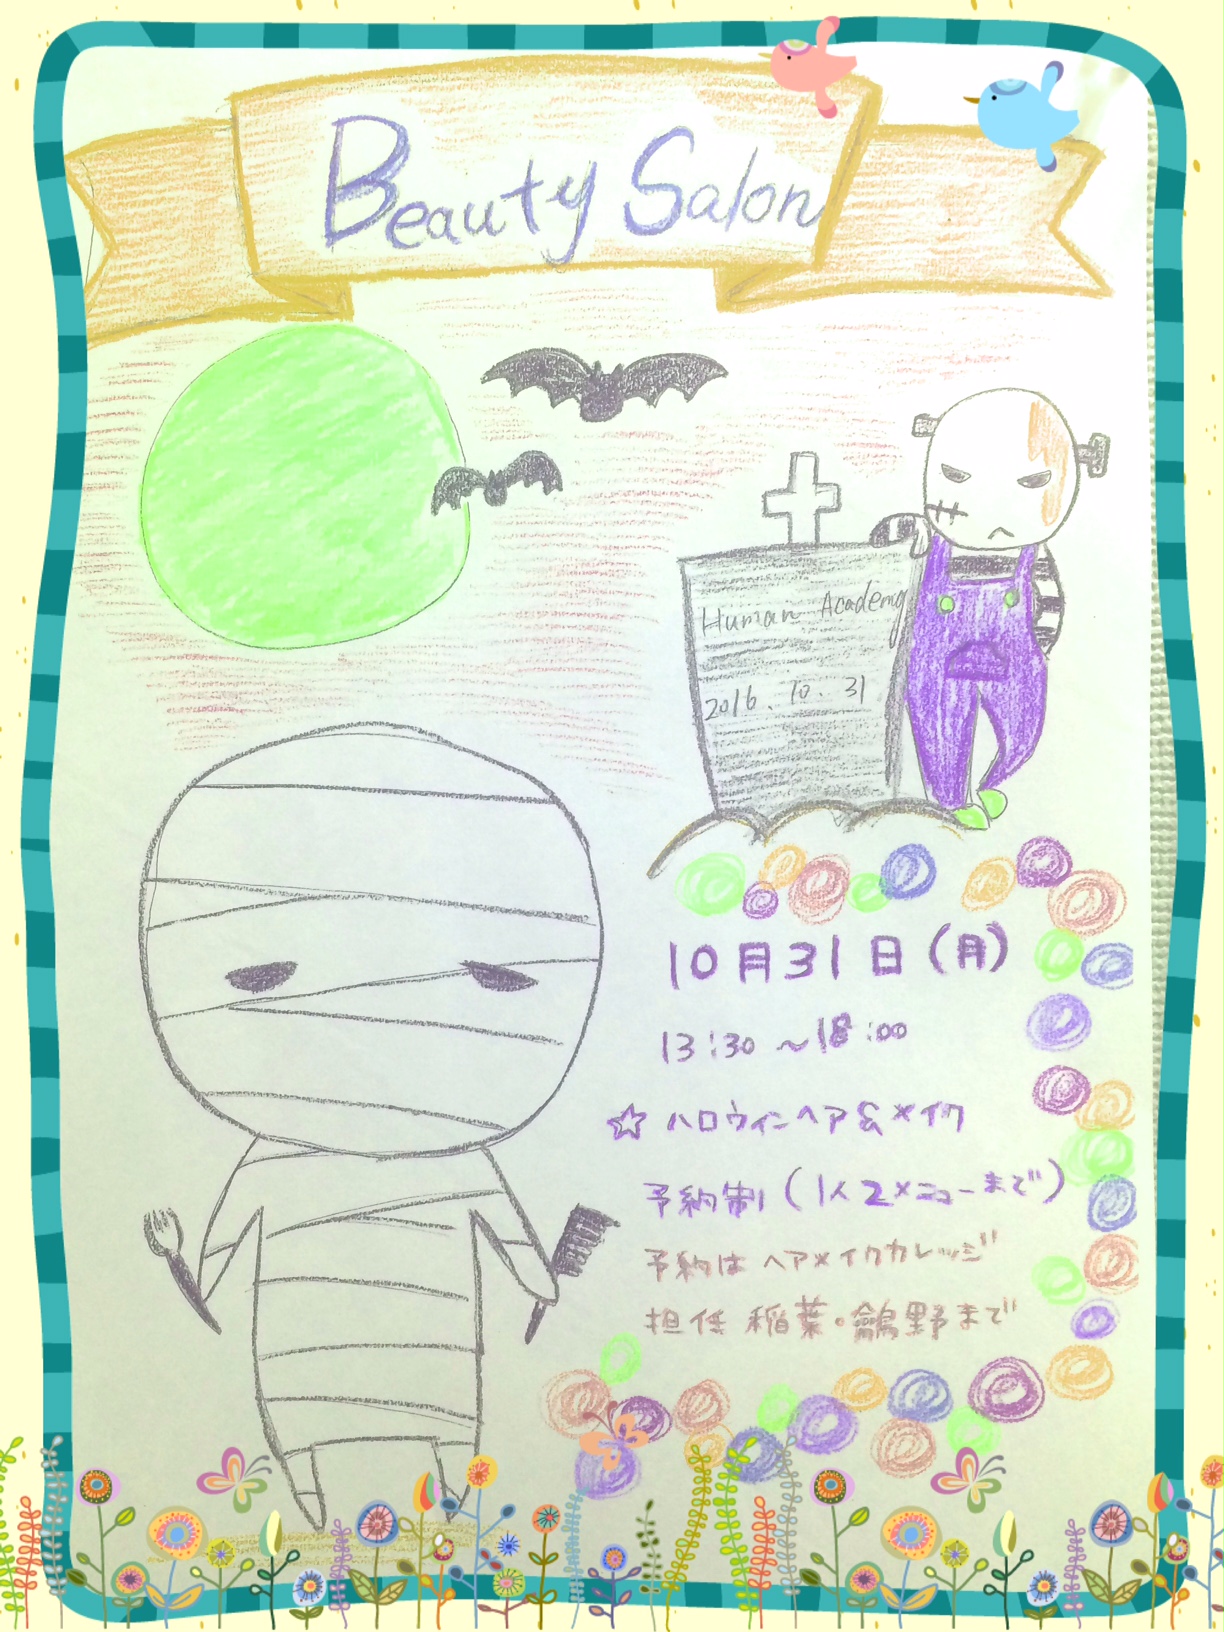 Beauty Salon
Human Academy
2016.10.31
10月31日(月)
13:30~18:00
☆ハロウィンヘア&メイク
予約制(1人2メニューまで)
予約はヘアメイクカレッジ
担任 稲葉・鶴野まで